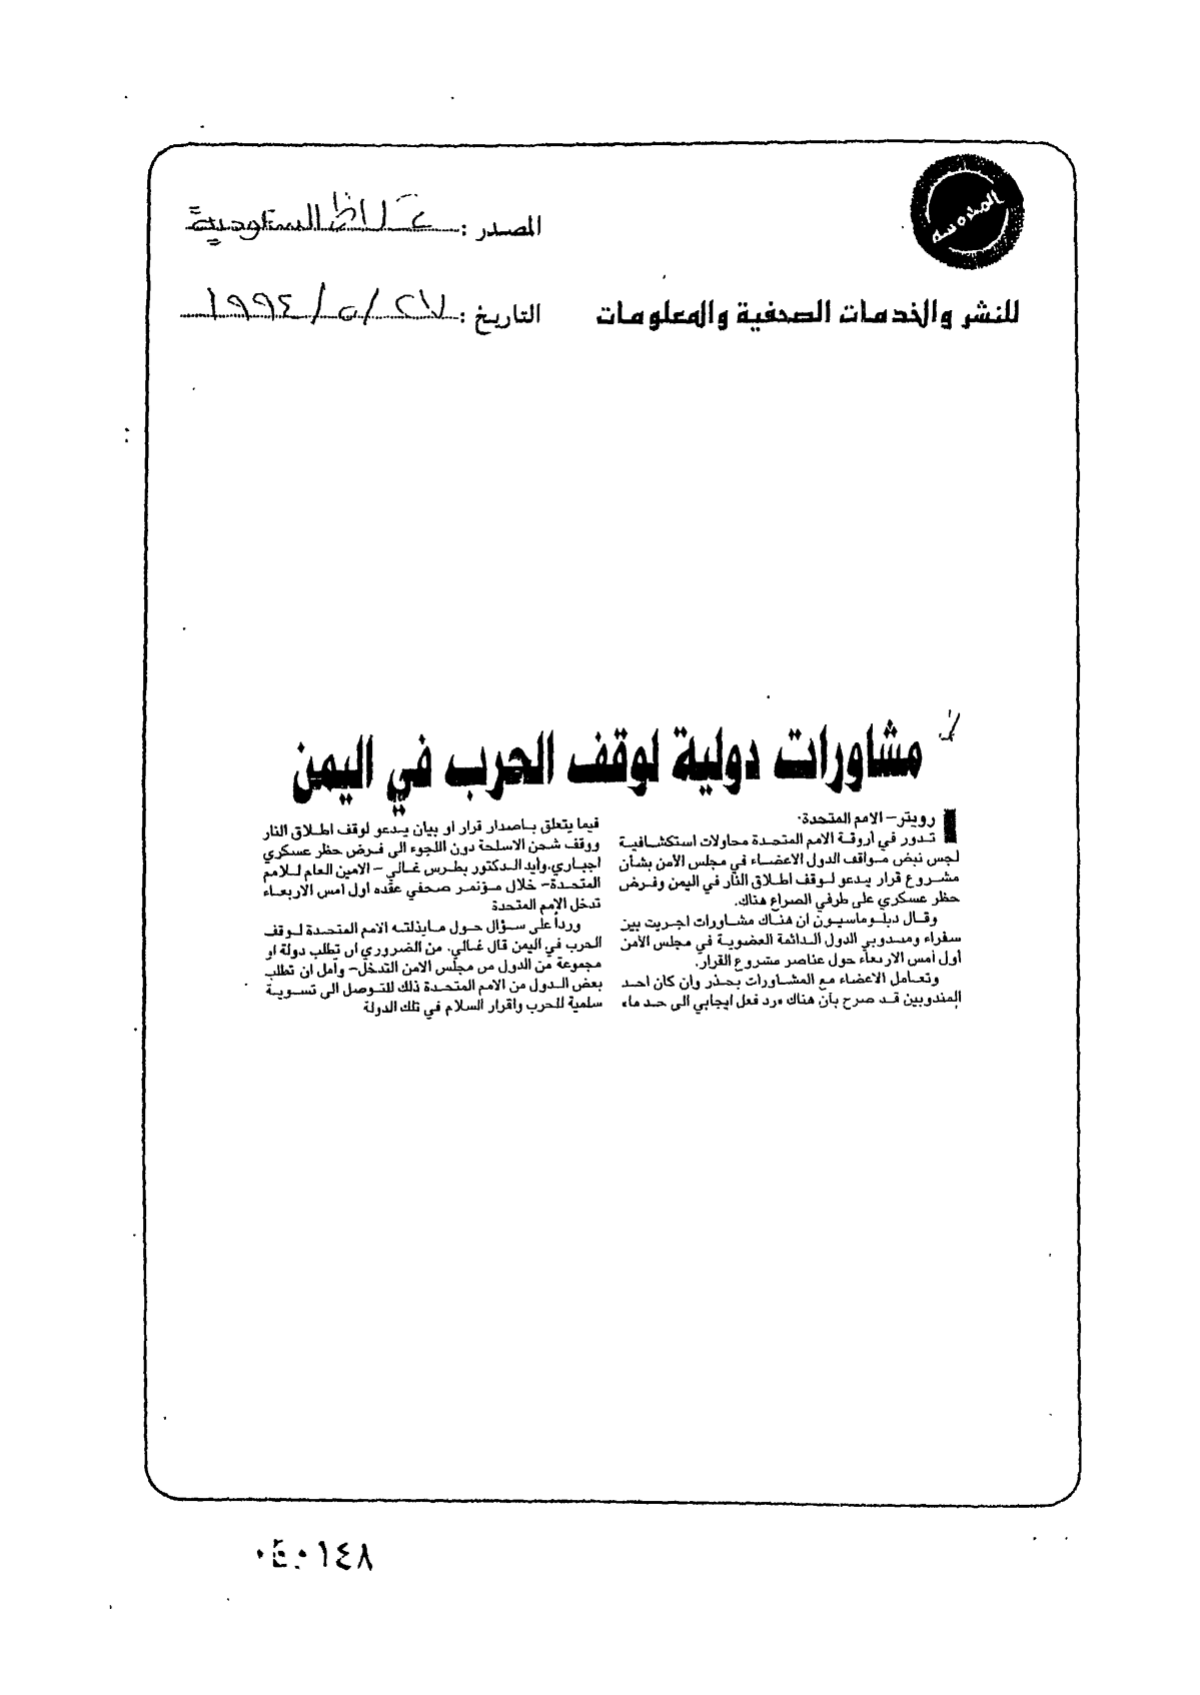 المصدر : عكاظ السعودية
للنشر والخدمات الصحفية والمعلومات
التاريخ : ٢٧ / ٥ / ١٩٩٤
مشاورات دولية لوقف الحرب في اليمن
رويتر - الامم المتحدة:
تدور في أروقة الامم المتحدة محاولات استكشافية
لجس نبض مواقف الدول الاعضاء في مجلس الأمن بشأن
مشروع قرار يدعو لوقف اطلاق النار في اليمن وفرض
حظر عسكري على طرفي الصراع هناك.
وقال دبلوماسيون ان هناك مشاورات اجريت بين
سفراء ومندوبي الدول الدائمة العضوية في مجلس الأمن
أول أمس الاربعاء حول عناصر مشروع القرار.
وتعامل الاعضاء مع المشاورات بحذر وان كان احد
المندوبين قد صرح بأن هناك «رد فعل ايجابي الى حد ما»
فيما يتعلق باصدار قرار او بيان يدعو لوقف اطلاق النار
ووقف شحن الاسلحة دون اللجوء الى فرض حظر عسكري
اجباري.وأيد الدكتور بطرس غالي - الامين العام للامم
المتحدة- خلال مؤتمر صحفي عقده اول امس الاربعاء
تدخل الامم المتحدة
وردا على سؤال حول مابذلته الامم المتحدة لوقف
الحرب في اليمن قال غالي. من الضروري ان تطلب دولة او
مجموعة من الدول من مجلس الامن التدخل- وآمل ان تطلب
بعض الدول من الامم المتحدة ذلك للتوصل الى تسوية
سلمية للحرب واقرار السلام في تلك الدولة